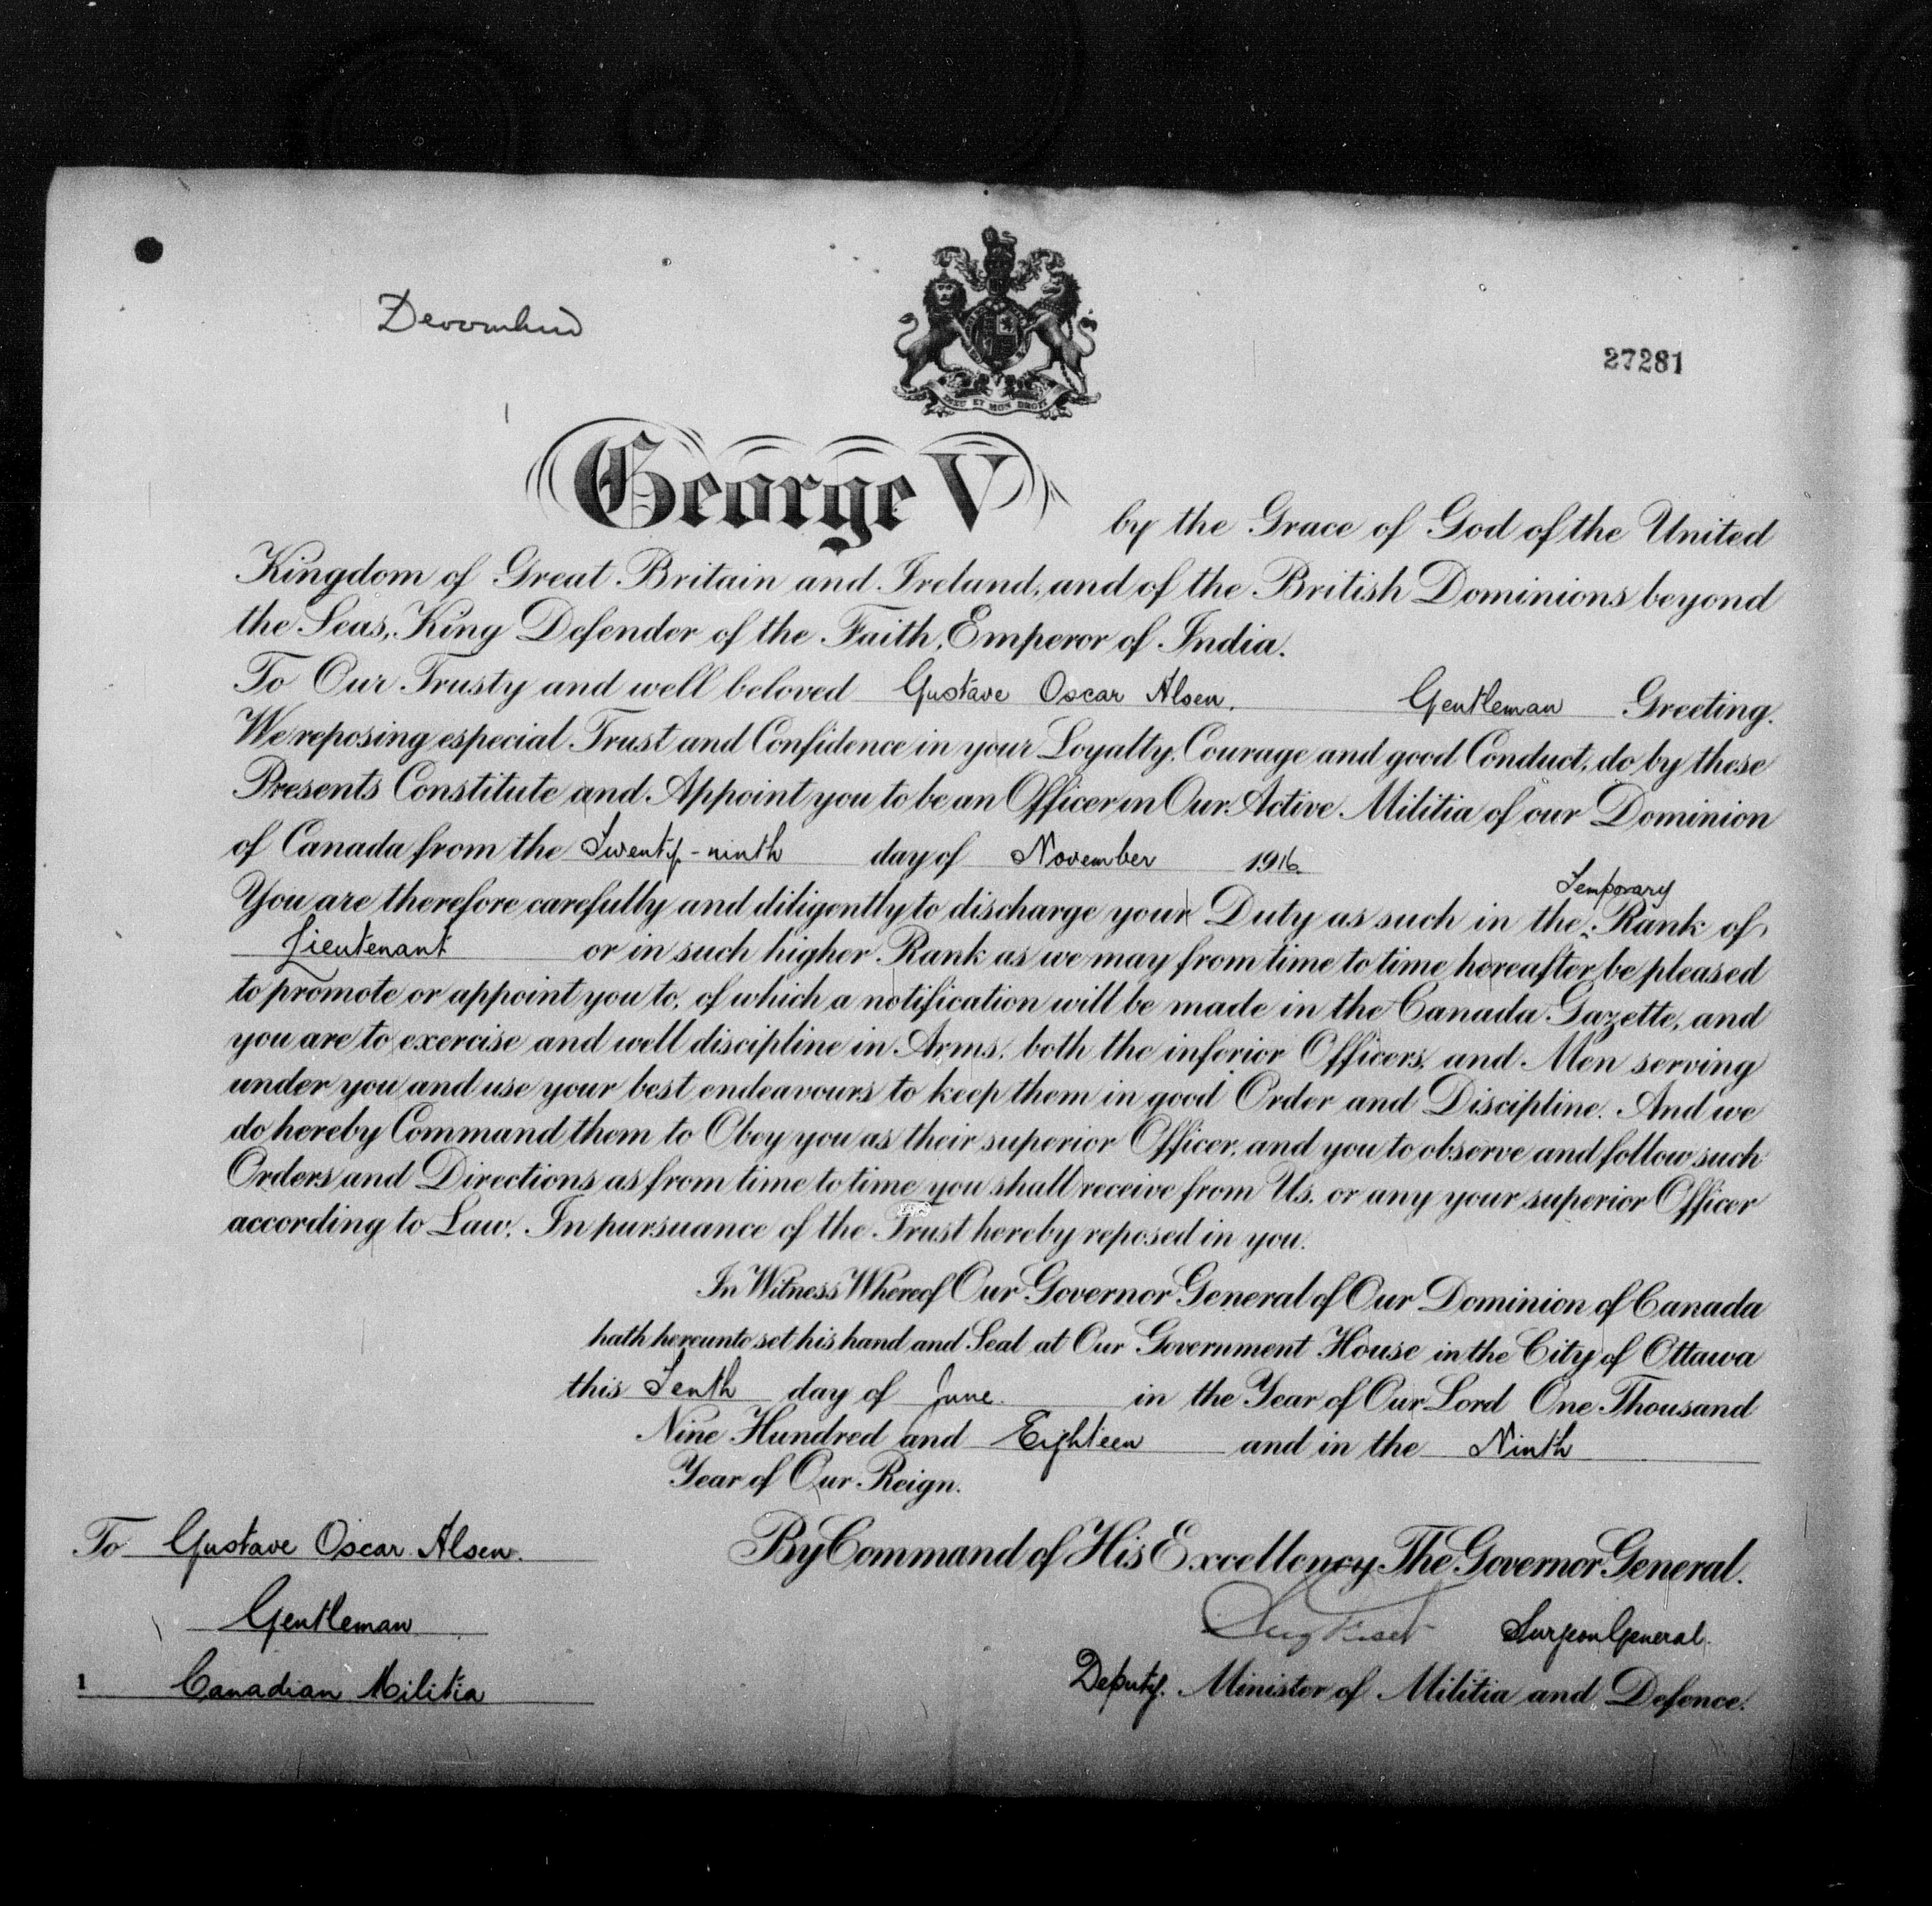 DIEU ET MON DROIT
27281
George V by the Grace of God of the United
Kingdom of Great Britain and Ireland, and of the British Dominions beyond
the Seas, King Defender of the Faith, Emperor of India.
To Our Trusty and well beloved Gustave Oscar Alsen. Gentleman Greeting.
We reposing especial Trust and Confidence in your Loyalty, Courage and good Conduct, do by these
Presents Constitute and Appoint you to be an Officer in Our Active Militia of our Dominion
of Canada from the Twenty-ninth day of November 1916.
Temporary
You are therefore carefully and diligently to discharge your Duty as such in the Rank of
Lieutenant or in such higher Rank as we may from time to time hereafter be pleased
to promote or appoint you to, of which a notification will be made in the Canada Gazette, and
you are to exercise and well discipline in Arms, both the inferior Officers, and Men serving
under you and use your best endeavours to keep them in good Order and Discipline. And we
do hereby Command them to Obey you as their superior Officer, and you to observe and follow such
Orders and Directions as from time to time you shall receive from Us, or any your superior Officer
according to Law. In pursuance of the Trust hereby reposed in you.
In Witness Whereof Our Governor General of Our Dominion of Canada
hath hereunto set his hand and Seal at Our Government House in the City of Ottawa
this Tenth day of June in the Year of Our Lord One Thousand
Nine Hundred and Eighteen and in the Ninth
Year of Our Reign.
To Gustave Oscar Alsen.
Gentleman
1 Canadian Militia
By Command of His Excellency The Governor General.
Surgeon General.
Deputy. Minister of Militia and Defence.